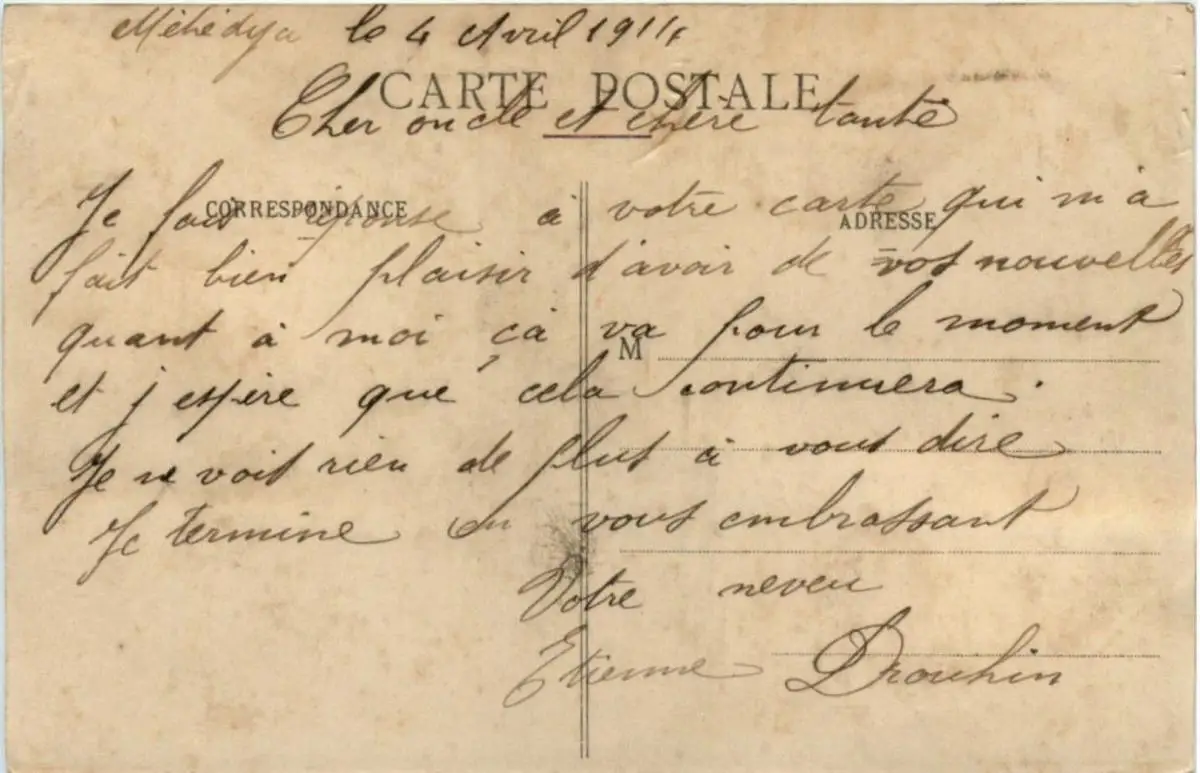 Méhédya le 4 Avril 1914
CARTE POSTALE
Cher oncle et chère tante
CORRESPONDANCE
ADRESSE
Je fais réponse à votre carte qui m'a
fait bien plaisir d'avoir de vos nouvelles
quant à moi çà va pour le moment
M
et j espère que cela continuera.
Je ne voit rien de plus à vous dire
Je termine en vous embrassant
Votre neveu
Etienne Drouhin